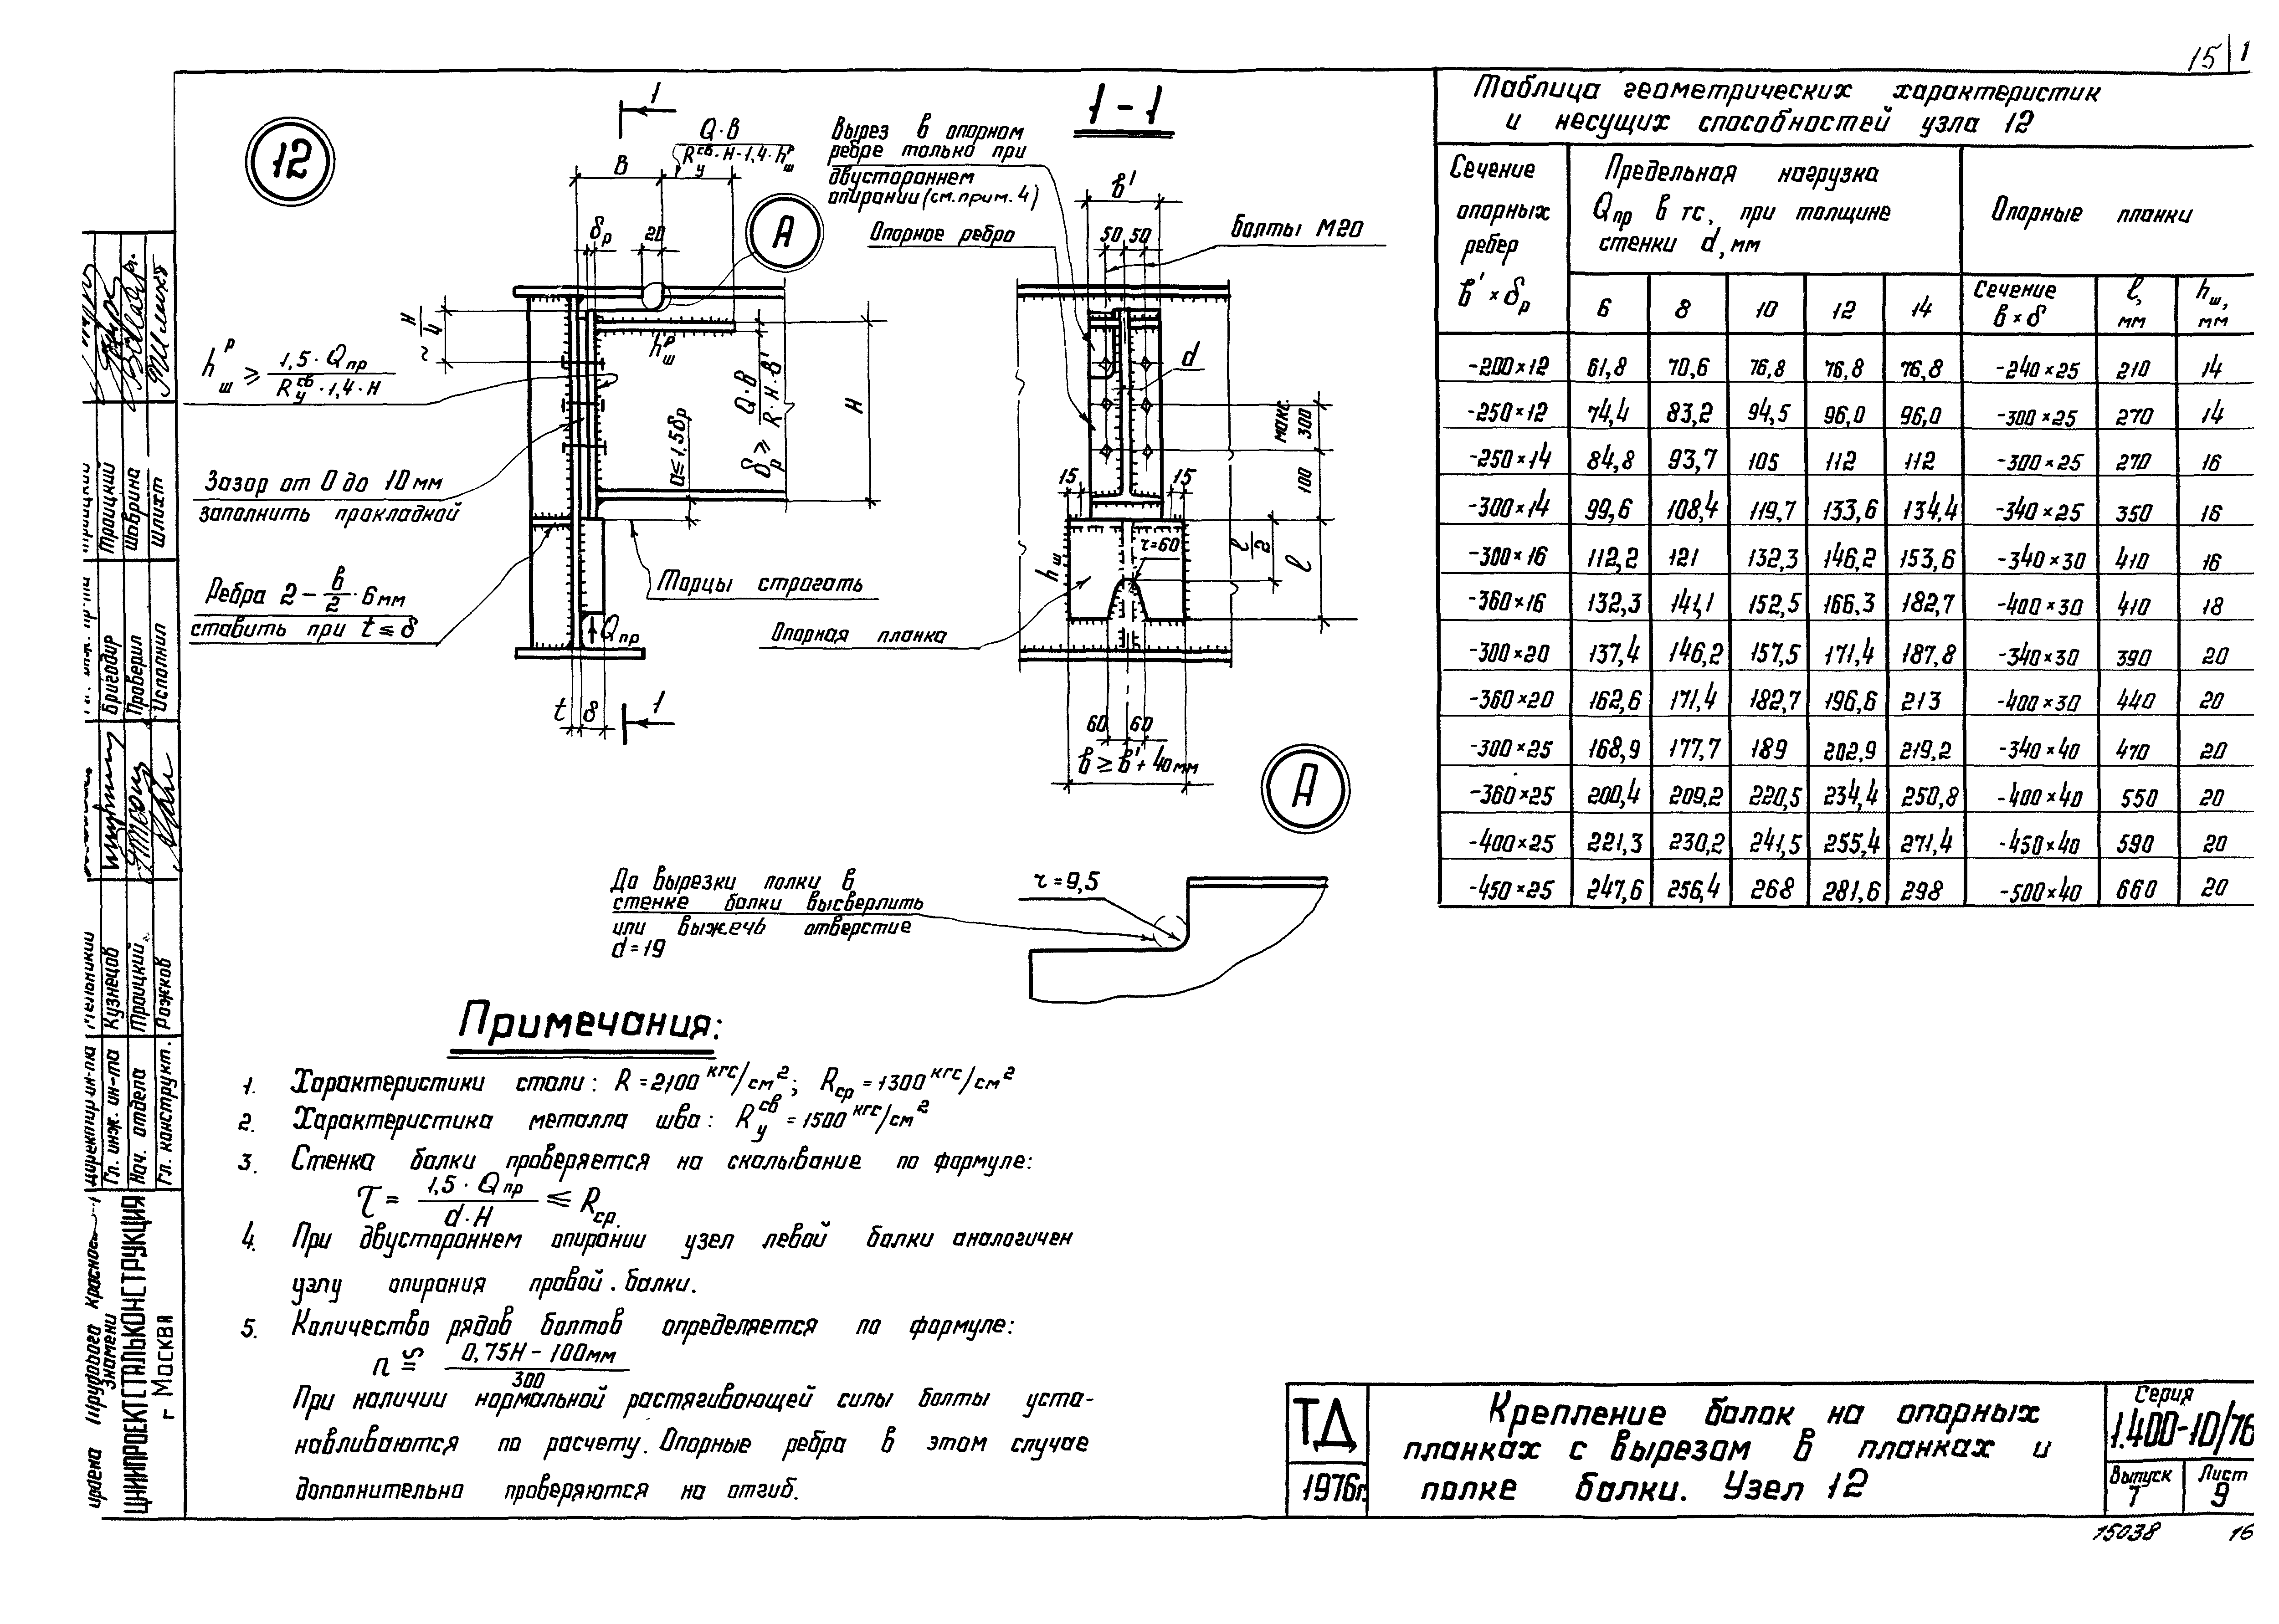 15 1
12
1
1-1
Q·в
R св у ·H·1,4·h р ш
Вырез в опорном
ребре только при
двустороннем
опирании (см. прим. 4)
Опорное ребро
Болты М20
в'
50 50
B
δр
20
A
H/4
h р ш ≥ 1,5·Qпр / R св у ·1,4·H
h р ш
δр ≥ Q·в / R·H·в'
a≤1,5δр
H
d
макс. 300
100
15
15
Зазор от 0 до 10 мм
заполнить прокладкой
Ребра 2 – в/2 · 6 мм
ставить при t ≤ δ
Торцы строгать
Опорная планка
Qпр
hш
r=60
ℓ/2
ℓ
t δ
1
60 60
в ≥ в'+40мм
A
До вырезки полки в
стенке балки высверлить
или выжечь отверстие
d=19
r=9,5
Таблица геометрических характеристик
и несущих способностей узла 12
Сечение опорных ребер в'×δр | Предельная нагрузка Qпр в тс, при толщине стенки d, мм | Опорные планки
6 | 8 | 10 | 12 | 14 | Сечение в×δ | ℓ, мм | hш, мм
-200×12 61,8 70,6 76,8 76,8 76,8 -240×25 210 14
-250×12 74,4 83,2 94,5 96,0 96,0 -300×25 270 14
-250×14 84,8 93,7 105 112 112 -300×25 270 16
-300×14 99,6 108,4 119,7 133,6 134,4 -340×25 350 16
-300×16 112,2 121 132,3 146,2 153,6 -340×30 410 16
-360×16 132,3 141,1 152,5 166,3 182,7 -400×30 410 18
-300×20 137,4 146,2 157,5 171,4 187,8 -340×30 390 20
-360×20 162,6 171,4 182,7 196,6 213 -400×30 440 20
-300×25 168,9 177,7 189 202,9 219,2 -340×40 470 20
-360×25 200,4 209,2 220,5 234,4 250,8 -400×40 550 20
-400×25 221,3 230,2 241,5 255,4 271,4 -450×40 590 20
-450×25 247,6 256,4 268 281,6 298 -500×40 660 20
Примечания:
1. Характеристики стали: R=2100 кгс/см²; Rср=1300 кгс/см²
2. Характеристика металла шва: R св у =1500 кгс/см²
3. Стенка балки проверяется на скалывание по формуле:
τ = 1,5·Qпр / d·H ≤ Rср.
4. При двустороннем опирании узел левой балки аналогичен
узлу опирания правой балки.
5. Количество рядов болтов определяется по формуле:
n ≅ 0,75H – 100мм / 300
При наличии нормальной растягивающей силы болты уста-
навливаются по расчету. Опорные ребра в этом случае
дополнительно проверяются на отгиб.
ТД
1976г.
Крепление балок на опорных
планках с вырезом в планках и
полке балки. Узел 12
Серия
1.400-10/76
Выпуск 1
Лист 9
15038 16
Троицкий
Шаврина
Шлихт
Бригадир
Проверил
Исполнил
Мельников
Кузнецов
Троицкий
Рожков
Директор ин-та
Гл. инж. ин-та
Нач. отдела
Гл. конструкт.
Ордена Трудового Красного
Знамени
ЦНИИПРОЕКТСТАЛЬКОНСТРУКЦИЯ
г Москва